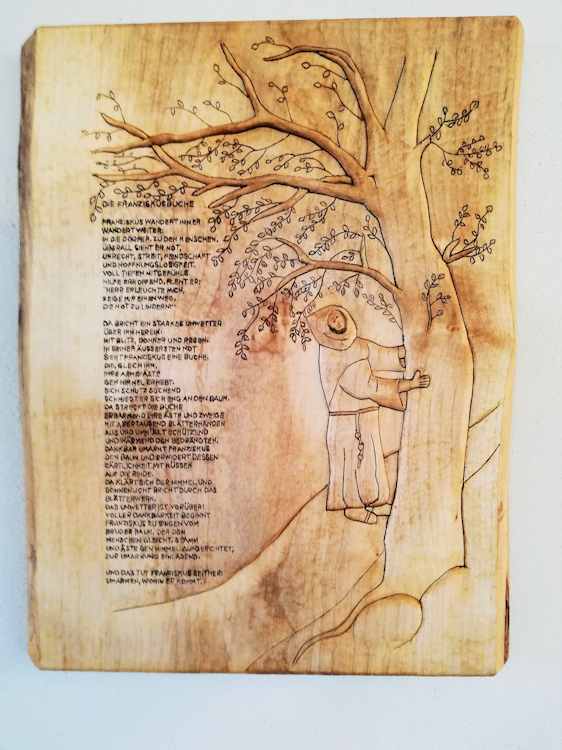 DIE FRANZISKUSBUCHE
FRANZISKUS WANDERT IMMER
WANDERT WEITER:
IN DIE DÖRFER, ZU DEN MENSCHEN.
ÜBERALL SIEHT ER NOT,
UNRECHT, STREIT, FEINDSCHAFT
UND HOFFNUNGSLOSIGKEIT.
VOLL TIEFEN MITGEFÜHLS
HILFE ERHOFFEND, FLEHT ER:
"HERR ERLEUCHTE MICH,
ZEIGE MIR EINEN WEG,
DIE NOT ZU LINDERN!"
DA BRICHT EIN STARKES UNWETTER
ÜBER IHN HEREIN:
MIT BLITZ, DONNER UND REGEN.
IN SEINER ÄUSSERSTEN NOT
SIEHT FRANZISKUS EINE BUCHE,
DIE, GLEICH IHM,
IHRE ARME/ÄSTE
GEN HIMMEL ERHEBT.
SICH SCHUTZ SUCHEND
SCHMIEGT ER SICH ENG AN DEN BAUM.
DA STRECKT DIE BUCHE
ERBARMEND IHRE ÄSTE UND ZWEIGE
MIT ABERTAUSEND BLÄTTERHÄNDEN
AUS UND UMHÜLLT SCHÜTZEND
UND WÄRMEND DEN BEDRÄNGTEN.
DANKBAR UMARMT FRANZISKUS
DEN BAUM UND ERWIDERT DESSEN
ZÄRTLICHKEIT MIT KÜSSEN
AUF DIE RINDE.
DA KLÄRT SICH DER HIMMEL UND
SONNENLICHT BRICHT DURCH DAS
BLÄTTERWERK.
DAS UNWETTER IST VORÜBER!
VOLLER DANKBARKEIT BEGINNT
FRANZISKUS ZU SINGEN VOM
BRUDER BAUM, DER DEN
MENSCHEN GLEICHT, STAMM
UND ÄSTE GEN HIMMEL AUFGERICHTET,
ZUR UMARMUNG EINLADEND.
UND DAS TUT FRANZISKUS SEITHER:
UMARMEN, WOHIN ER KOMMT.